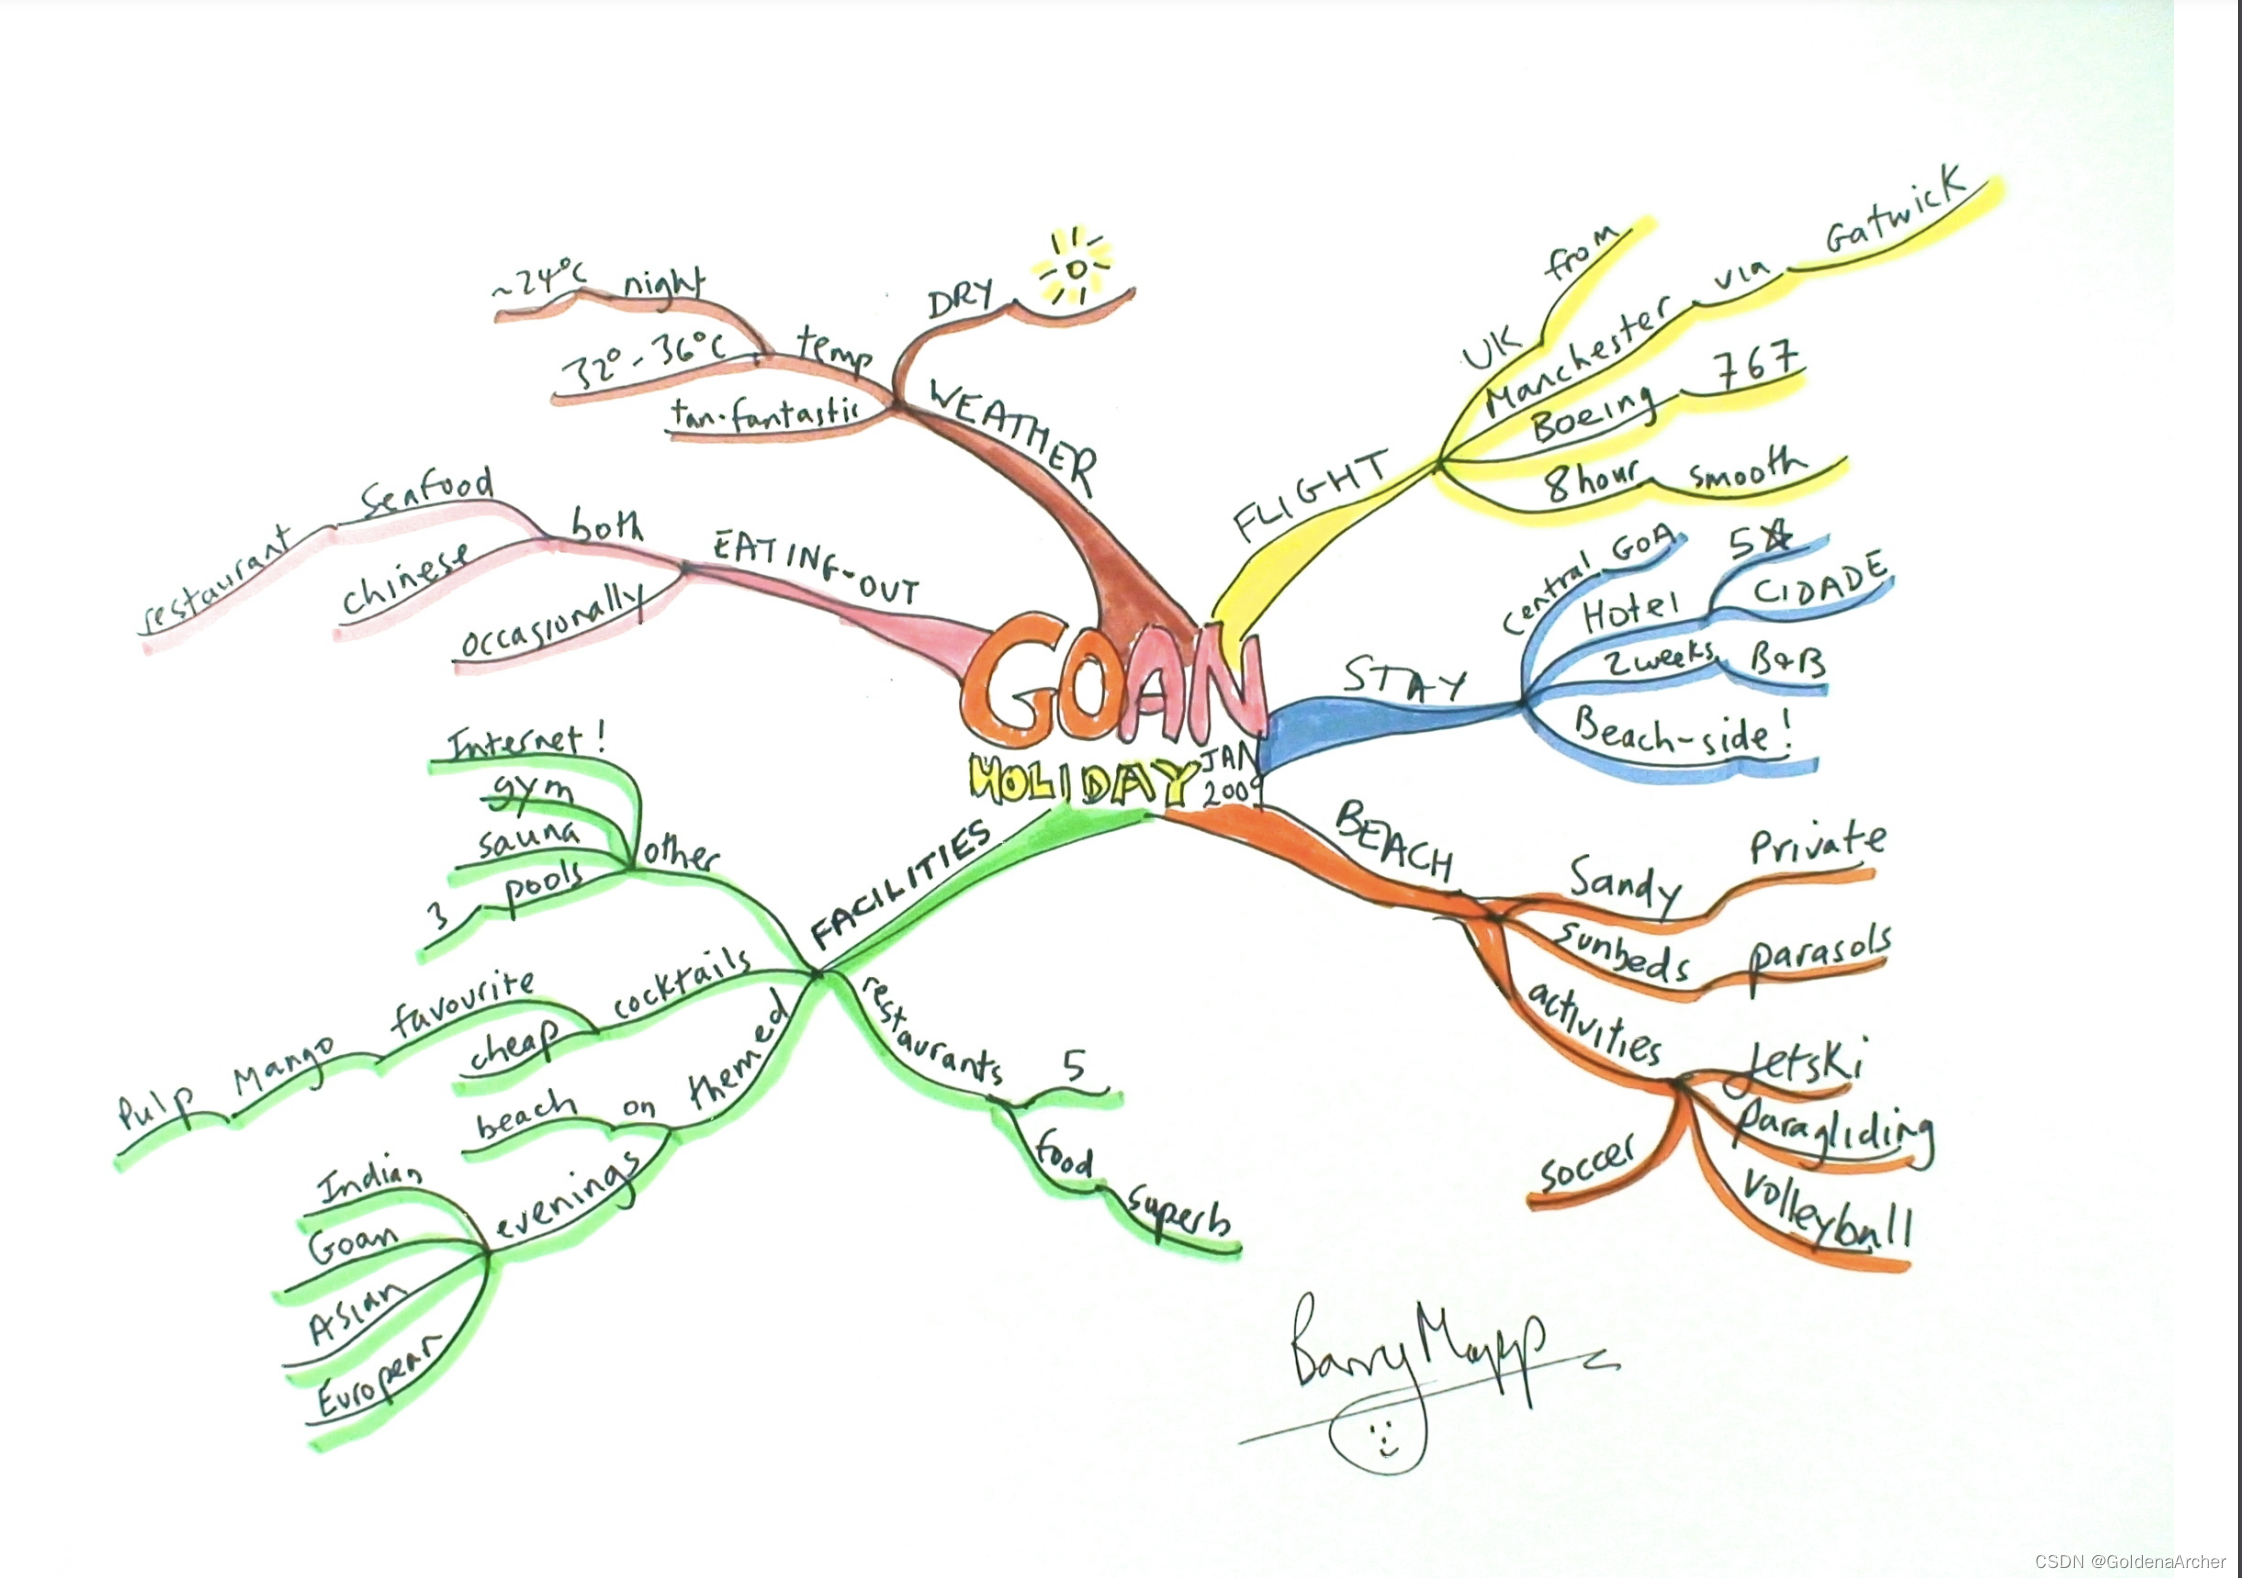 GOAN
HOLIDAY
JAN
2009
FLIGHT
UK
from
Manchester
via
Gatwick
Boeing
767
8hour
smooth
STAY
central GOA
Hotel
5☆
CIDADE
2weeks
B&B
Beach-side!
BEACH
Sandy
Private
sunbeds
parasols
activities
Jetski
Paragliding
Volleyball
soccer
FACILITIES
restaurants
5
food
superb
themed
on
beach
evenings
Indian
Goan
Asian
European
cocktails
favourite
Mango
Pulp
cheap
other
Internet!
gym
sauna
pools
3
EATING-OUT
both
Seafood
restaurant
chinese
occasionally
WEATHER
DRY
temp
night
~24°C
32°-36°C
tan-fantastic
Barry Mapp
CSDN @GoldenaArcher